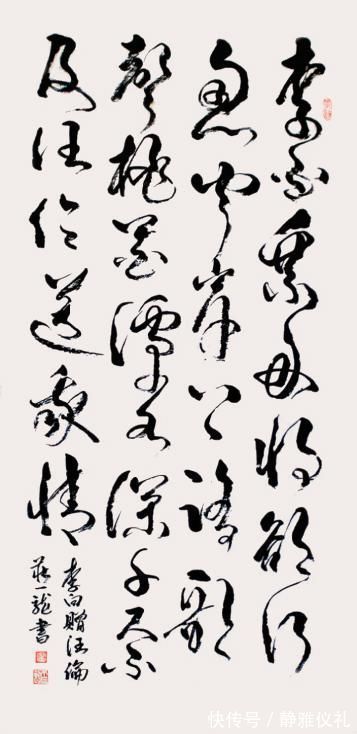 李白乘舟將欲行
忽聞岸上踏歌
聲桃花潭水深千尺不
及汪倫送我情
李白贈汪倫
一龍書
快传号／静雅仪礼